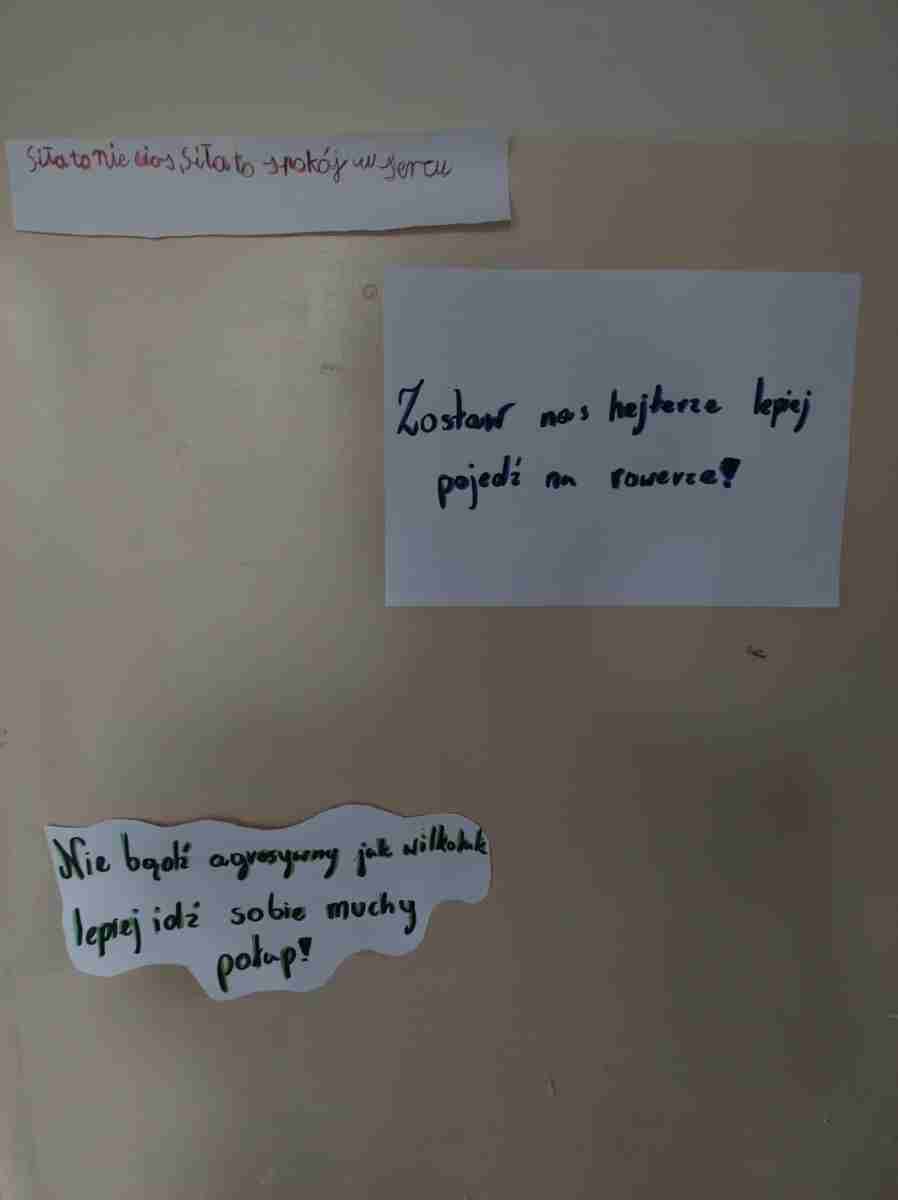 Siła to nie cios, Siła to spokój w sercu
Zostaw nas hejterze lepiej
pojedź na rowerze!
Nie bądź agresywny jak wilkołak
lepiej idź sobie muchy
połap!